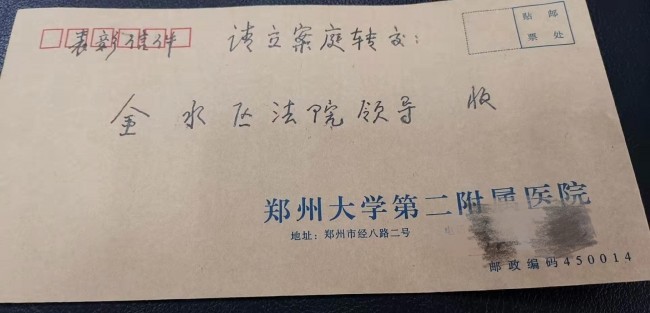 表彰信件 请立案庭转交:
贴 邮
票 处
金水区法院领导 收
郑州大学第二附属医院
地址:郑州市经八路二号
邮政编码450014